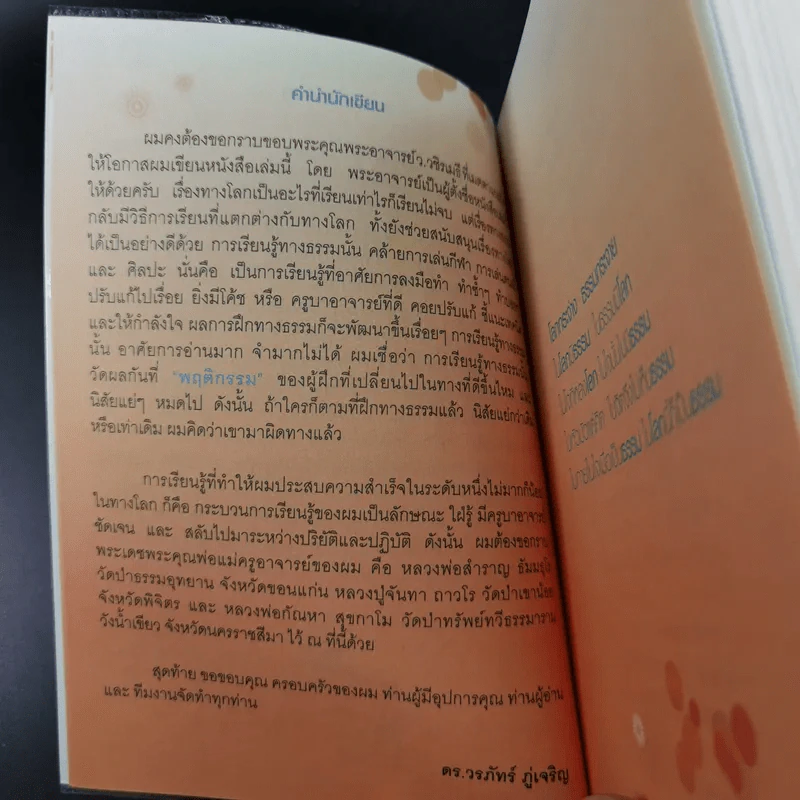 คำนำนักเขียน
ผมคงต้องขอกราบขอบพระคุณพระอาจารย์ว.วชิรเมธี
ให้โอกาสผมเขียนหนังสือเล่มนี้ โดย พระอาจารย์เป็นผู้ตั้งชื่อหนังสือ
ให้ด้วยครับ เรื่องทางโลกเป็นอะไรที่เรียนเท่าไรก็เรียนไม่จบ
กลับมีวิธีการเรียนที่แตกต่างกับทางโลก ทั้งยังช่วยสนับสนุนเรื่อง
ได้เป็นอย่างดีด้วย การเรียนรู้ทางธรรมนั้น คล้ายการเล่นกีฬา การเล่น
และ ศิลปะ นั่นคือ เป็นการเรียนรู้ที่อาศัยการลงมือทำ ทำซ้ำๆ
ปรับแก้ไปเรื่อย ยิ่งมีโค้ช หรือ ครูบาอาจารย์ที่ดี คอยปรับแก้ ชี้แนะ
และให้กำลังใจ ผลการฝึกทางธรรมก็จะพัฒนาขึ้นเรื่อยๆ การเรียนรู้
นั้น อาศัยการอ่านมาก จำมากไม่ได้ ผมเชื่อว่า การเรียนรู้ทางธรรม
วัดผลกันที่ "พฤติกรรม" ของผู้ฝึกที่เปลี่ยนไปในทางที่ดีขึ้นไหม และ
นิสัยแย่ๆ หมดไป ดังนั้น ถ้าใครก็ตามที่ฝึกทางธรรมแล้ว นิสัยแย่กว่าเดิม
หรือเท่าเดิม ผมคิดว่าเขามาผิดทางแล้ว
การเรียนรู้ที่ทำให้ผมประสบความสำเร็จในระดับหนึ่งไม่มากก็น้อย
ในทางโลก ก็คือ กระบวนการเรียนรู้ของผมเป็นลักษณะ ใฝ่รู้ มีครูบาอาจารย์
ชัดเจน และ สลับไปมาระหว่างปริยัติและปฏิบัติ ดังนั้น ผมต้องขอกราบ
พระเดชพระคุณพ่อแม่ครูอาจารย์ของผม คือ หลวงพ่อสำราญ
วัดป่าธรรมอุทยาน จังหวัดขอนแก่น หลวงปู่จันทา ถาวโร วัดป่าเขาน้อย
จังหวัดพิจิตร และ หลวงพ่อกัณหา สุขกาโม วัดป่าทรัพย์ทวีธรรมาราม
วังน้ำเขียว จังหวัดนครราชสีมา ไว้ ณ ที่นี้ด้วย
สุดท้าย ขอขอบคุณ ครอบครัวของผม ท่านผู้มีอุปการคุณ ท่านผู้อ่าน
และ ทีมงานจัดทำทุกท่าน
ดร.วรภัทร์ ภู่เจริญ